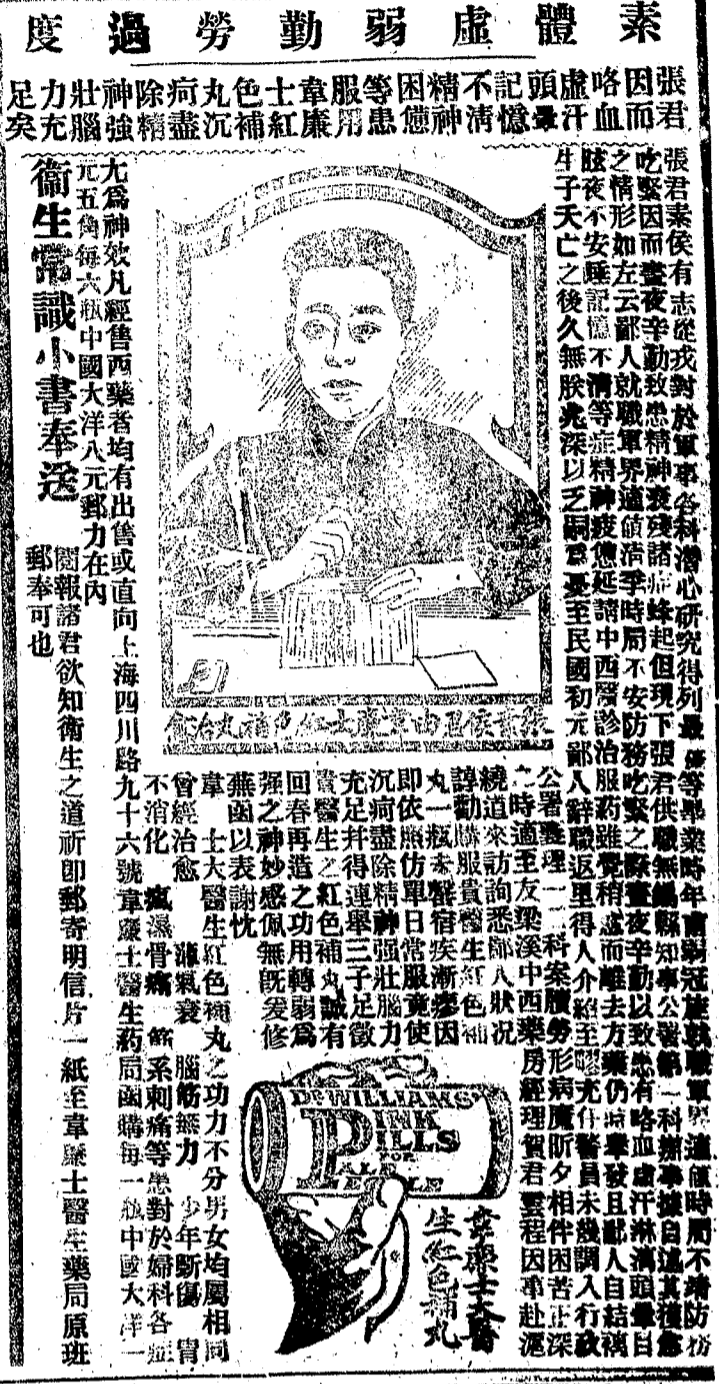 素體虛弱勤勞過度
張君
因而
咯血
虛汗
頭暈
記憶
不清
精神
困憊
等患
服用
韋廉
士紅
色補
丸沉
疴盡
除精
神強
壯腦
力充
足矣
張君素侯有志從戎對於軍事各科潛心研究得列最優等畢業時年甫弱冠旋就職軍界適值時局不靖防務
吃緊因而晝夜辛勤致患精神衰殘諸症蜂起但現下張君供職無錫縣知事公署第一科辦事據自述其獲愈
之情形如左云鄙人就職軍界適值清季時局不安防務吃緊之際晝夜辛勤以致患有咯血虛汗淋漓頭暈目
眩夜不安睡記憶不清等症精神疲憊延請中西醫診治服药雖覺稍愈而離去方藥仍時舉發且鄙人自結褵
生子夭亡之後久無朕兆深以乏嗣為憂至民國初元鄙人辭職返里得人介紹至 充任警員未幾調入行政
公署襄理一二科案牘勞形病魔昕夕相伴困苦正深
之時適至友梁溪中西藥房經理賀君雲程因事赴滬
繞道來訪詢悉鄙人狀況
諄勸購服貴醫生紅色補
丸一瓶未罄宿疾漸瘳因
即依照仿單日常服竟使
沉疴盡除精神强壯腦力
充足并得連舉三子足徵
貴醫生之紅色補丸誠有
回春再造之功用轉弱爲
强之神妙感佩無旣爰修
蕪函以表謝忱
韋 士大醫生紅色補丸之功力不分男女均屬相同
曾經治愈 氣衰 腦筋無力 少年斲傷 胃
不消化 瘋濕骨痛 筋系刺痛等患對於婦科各症
尤爲神效凡經售西藥者均有出售或直向上海四川路九十六號韋廉士醫生药局函購每一瓶中國大洋一
元五角每六瓶中國大洋八元郵力在內
衞生常識小書奉送
閱報諸君欲知衛生之道祈即郵寄明信片一紙至韋廉士醫生藥局原班
郵奉可也
張素侯君由韋廉士紅色補丸治愈
DR WILLIAMS'
PINK
PILLS
FOR
PALE
PEOPLE
韋廉士大醫
生紅色補丸